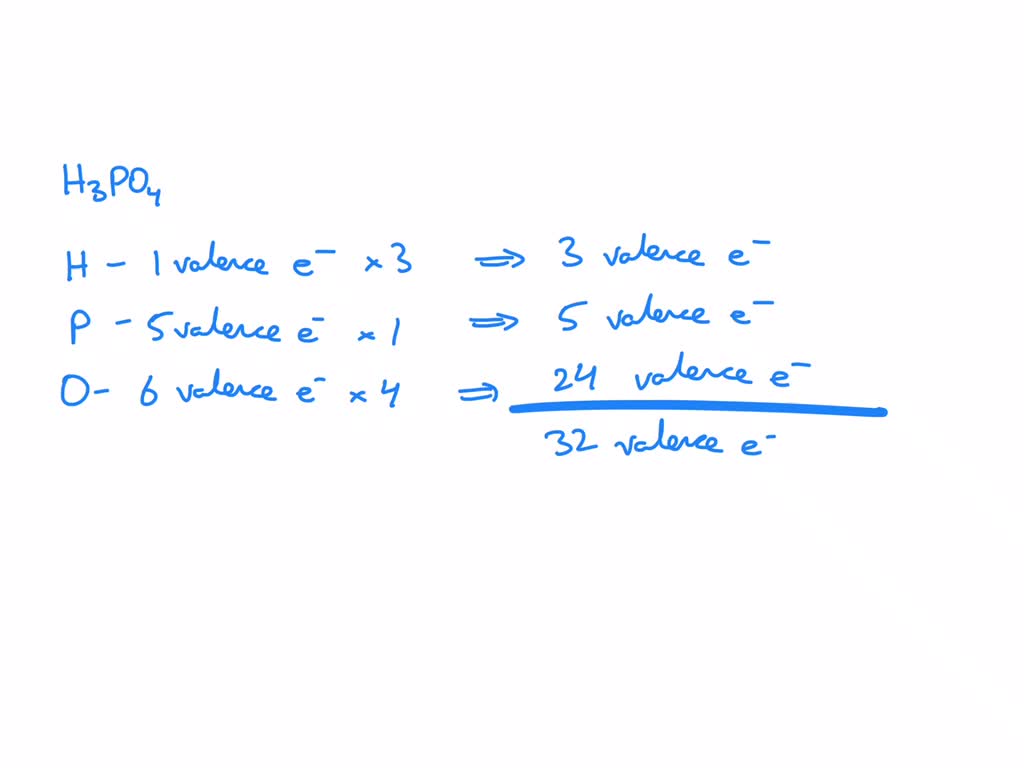 H₃PO₄
H – 1 valence e⁻ × 3 ⇒ 3 valence e⁻
P – 5 valence e⁻ × 1 ⇒ 5 valence e⁻
O – 6 valence e⁻ × 4 ⇒ 24 valence e⁻
32 valence e⁻